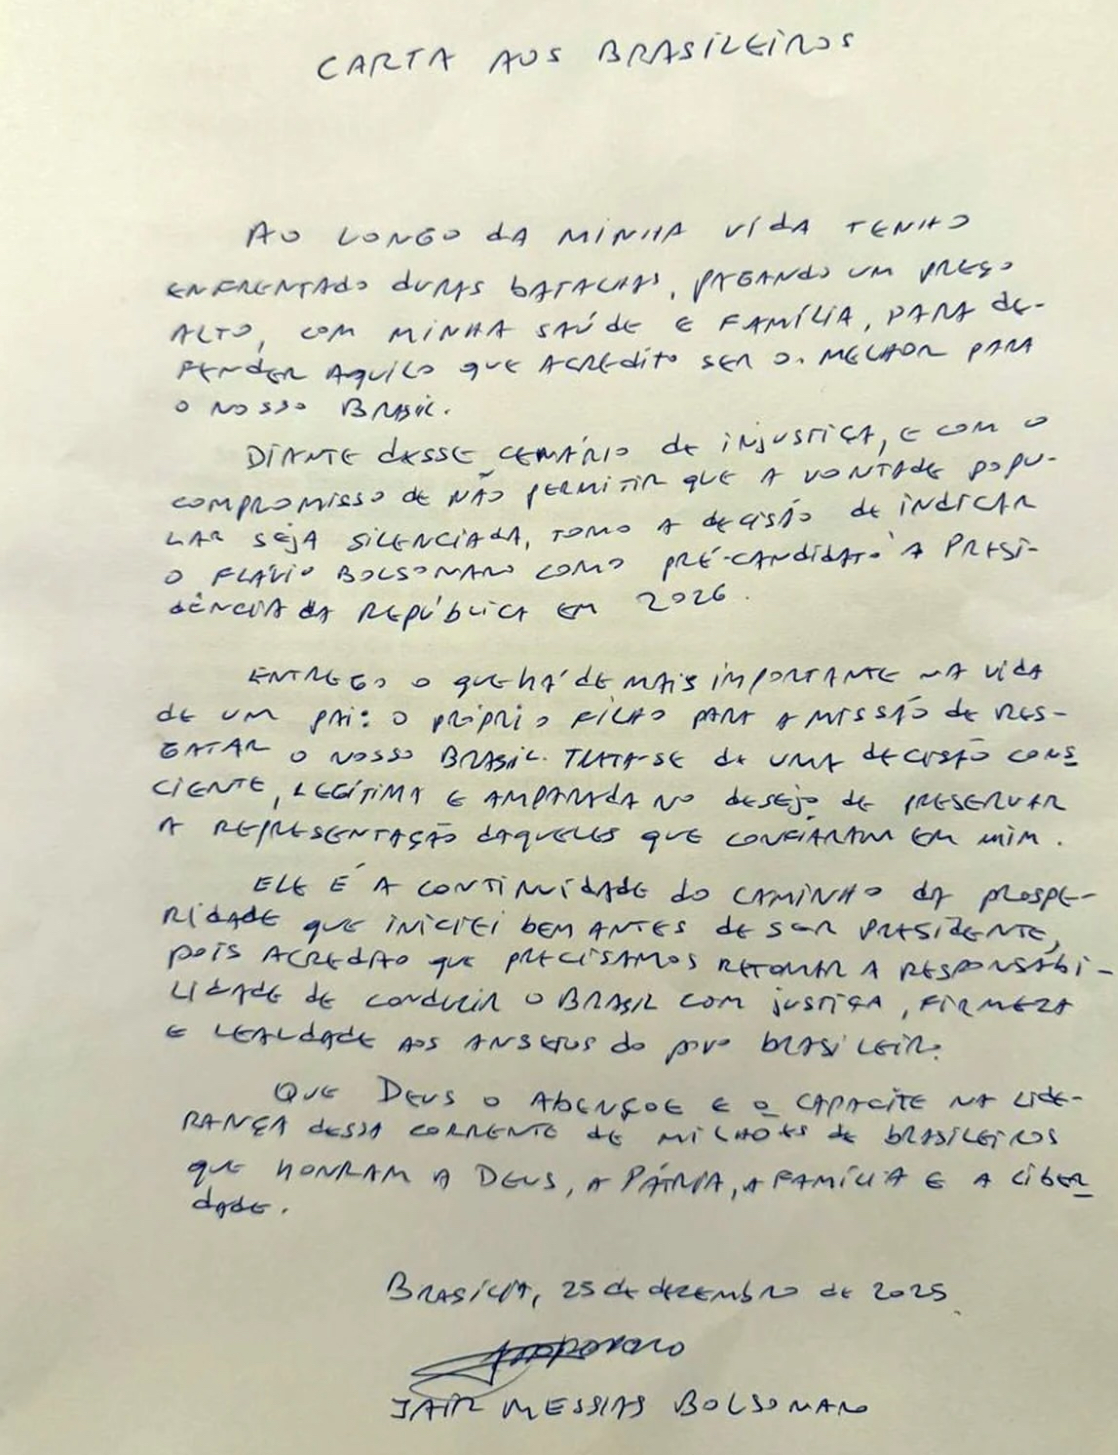 CARTA AOS BRASILEIROS
AO LONGO DA MINHA VIDA TENHO
ENFRENTADO DURAS BATALHAS, PAGANDO UM PREÇO
ALTO, COM MINHA SAÚDE E FAMÍLIA, PARA DE-
FENDER AQUILO QUE ACREDITO SER O. MELHOR PARA
O NOSSO BRASIL.
DIANTE DESSE CENÁRIO DE INJUSTIÇA, E COM O
COMPROMISSO DE NÃO PERMITIR QUE A VONTADE POPU-
LAR SEJA SILENCIADA, TOMO A DECISÃO DE INDICAR
O FLÁVIO BOLSONARO COMO PRÉ-CANDIDATO À PRESI-
DÊNCIA DA REPÚBLICA EM 2026.
ENTREGO O QUE HÁ DE MAIS IMPORTANTE NA VIDA
DE UM PAI: O PRÓPRIO FILHO PARA A MISSÃO DE RES-
GATAR O NOSSO BRASIL. TRATA-SE DE UMA DECISÃO CONS
CIENTE, LEGÍTIMA E AMPARADA NO DESEJO DE PRESERVAR
A REPRESENTAÇÃO DAQUELES QUE CONFIARAM EM MIM.
ELE É A CONTINUIDADE DO CAMINHO DA PROSPE-
RIDADE QUE INICIEI BEM ANTES DE SER PRESIDENTE,
POIS ACREDITO QUE PRECISAMOS RETOMAR A RESPONSABI-
LIDADE DE CONDUZIR O BRASIL COM JUSTIÇA, FIRMEZA
E LEALDADE AOS ANSEIOS DO POVO BRASILEIRO.
QUE DEUS O ABENÇOE E O CAPACITE NA LIDE-
RANÇA DESSA CORRENTE DE MILHÕES DE BRASILEIROS
QUE HONRAM A DEUS, A PÁTRIA, A FAMÍLIA E A LIBER
DADE.
BRASÍLIA, 25 DE DEZEMBRO DE 2025
JAIR MESSIAS BOLSONARO